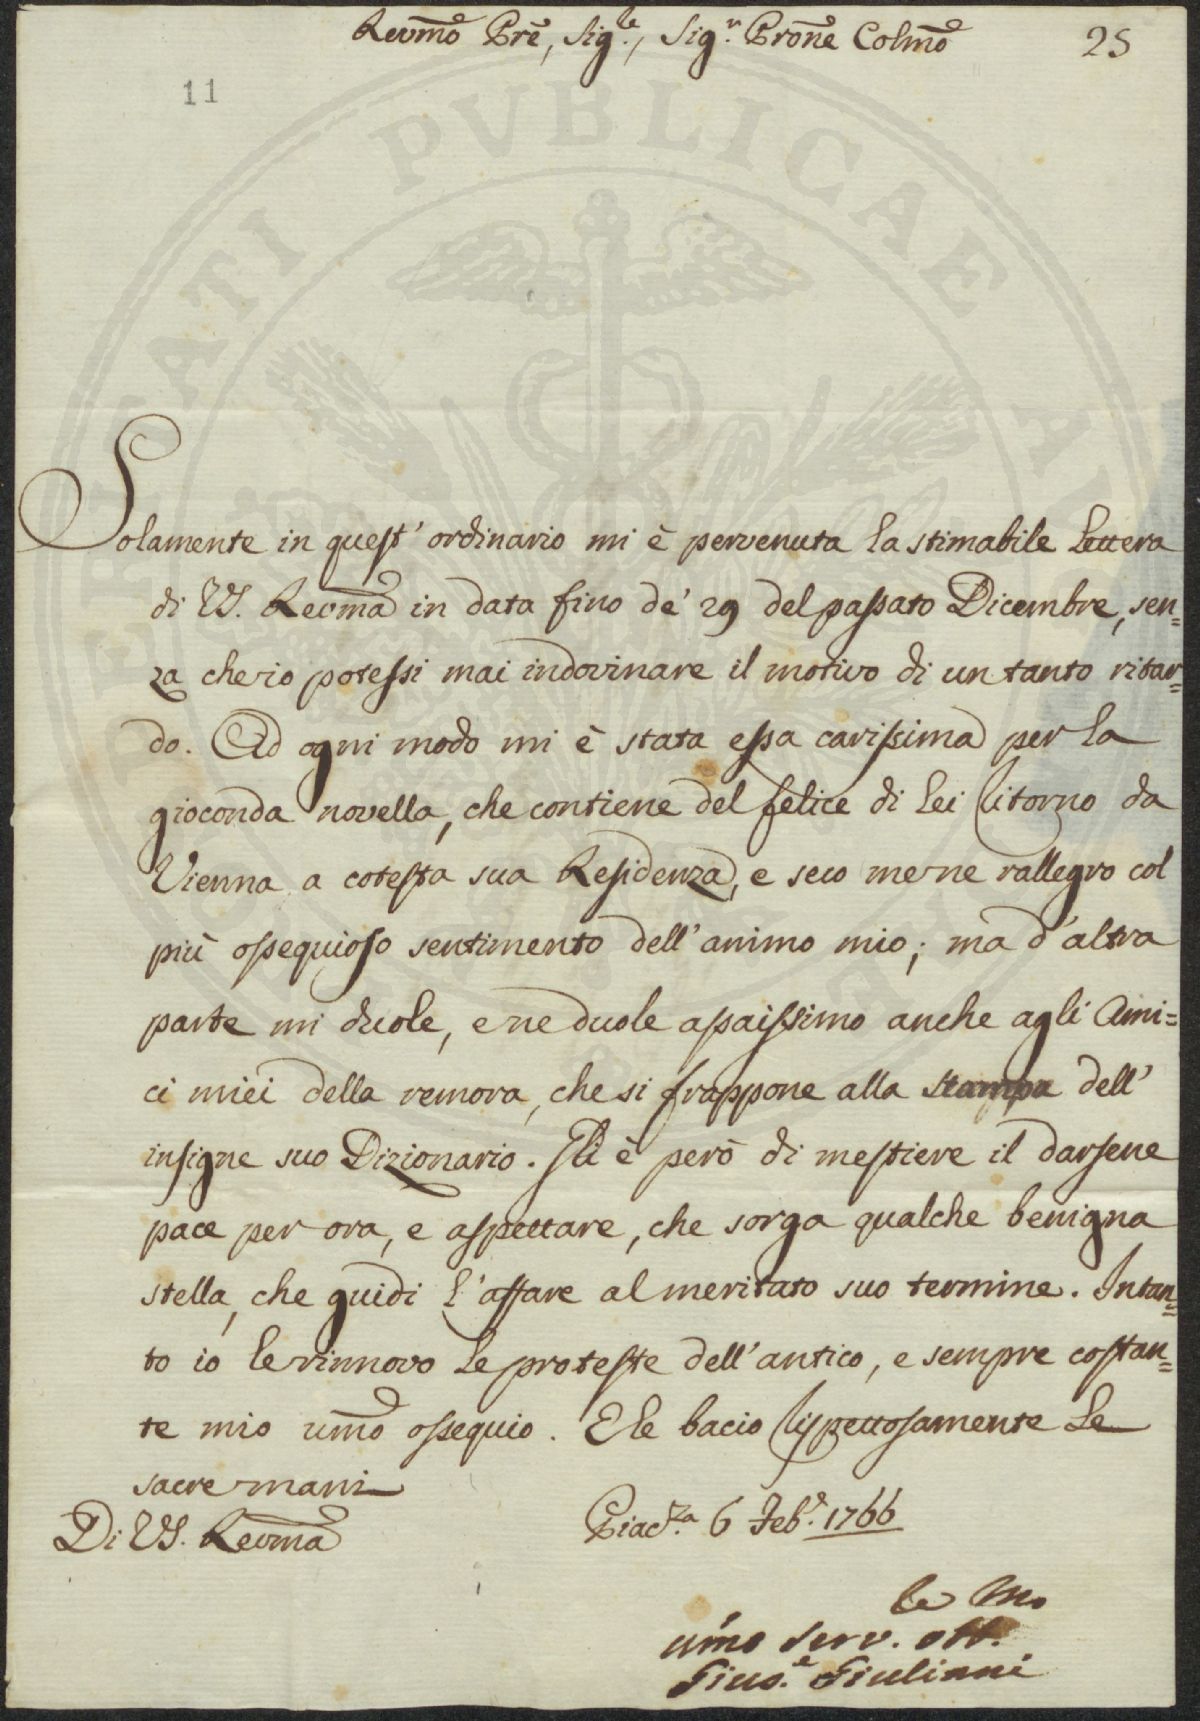 Revmo Pre, Sigle, Sigr Prone Colmo
25
11
Solamente in quest' ordinario mi è pervenuta la stimabile Lettera
di VS. Revma in data fino de' 29 del passato Dicembre, sen=
za che io potessi mai indovinare il motivo di un tanto ritar=
do. Ad ogni modo mi è stata essa carissima per la
gioconda novella, che contiene del felice di Lei Ritorno da
Vienna a cotesta sua Residenza, e seco me ne rallegro col
più ossequioso sentimento dell' animo mio; ma d' altra
parte mi duole, e ne duole assaissimo anche agli Ami=
ci miei della remora, che si frappone alla stampa dell'
insigne suo Dizionario. Gli è però di mestiere il darsene
pace per ora, e aspettare, che sorga qualche benigna
stella, che guidi l' affare al meritato suo termine. Intan=
to io le rinnovo le proteste dell' antico, e sempre costan=
te mio umo ossequio. E le bacio Rispettosamente le
sacre mani
Di VS. Revma
Piacza 6 Feb. 1766
umo serv. ott.
Gius.e Giuliani